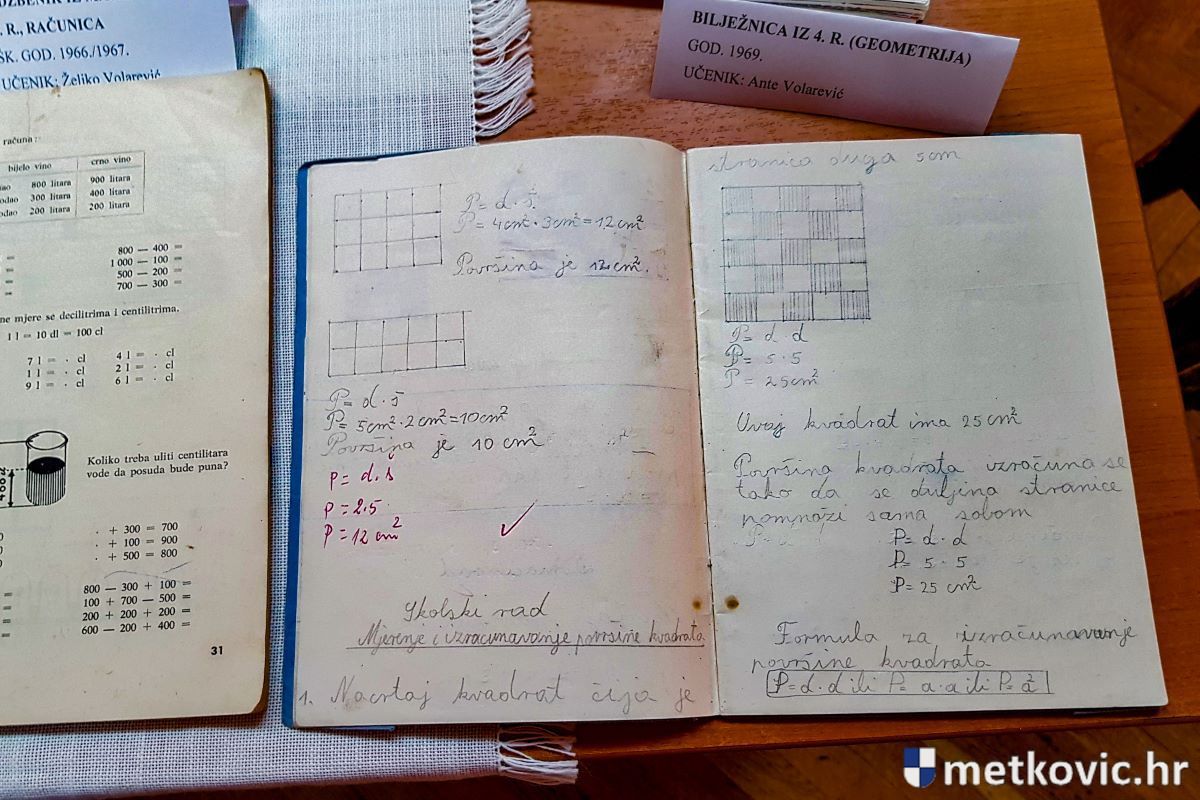 . R., RAČUNICA
ŠK. GOD. 1966./1967.
UČENIK: Željko Volarević
BILJEŽNICA IZ 4. R. (GEOMETRIJA)
GOD. 1969.
UČENIK: Ante Volarević
računa:
bijelo vino crno vino
800 litara 900 litara
300 litara 400 litara
200 litara 200 litara
800 — 400 =
1 000 — 100 =
500 — 200 =
700 — 300 =
ne mjere se decilitrima i centilitrima.
1 l = 10 dl = 100 cl
7 l = . cl 4 l = . cl
1 l = . cl 2 l = . cl
9 l = . cl 6 l = . cl
Koliko treba uliti centilitara
vode da posuda bude puna?
. + 300 = 700
. + 100 = 900
. + 500 = 800
800 — 300 + 100 =
100 + 700 — 500 =
200 + 200 + 200 =
600 — 200 + 400 =
31
P = d · š
P = 4 cm² · 3 cm² = 12 cm²
Površina je 12 cm².
P = d · š
P = 5 cm² · 2 cm² = 10 cm²
Površina je 10 cm²
P = d . š
P = 2.5
P = 12 cm²
Školski rad
Mjerenje i izračunavanje površine kvadrata
1. Nacrtaj kvadrat čija je
stranica duga 5 cm
P = d · d
P = 5 · 5
P = 25 cm²
Ovaj kvadrat ima 25 cm²
Površina kvadrata izračuna se
tako da se duljina stranice
pomnoži sama sobom
P = d · d
P = 5 · 5
P = 25 cm²
Formula za izračunavanje
površine kvadrata
P = d · d ili P = a · a ili P = a²
metkovic.hr